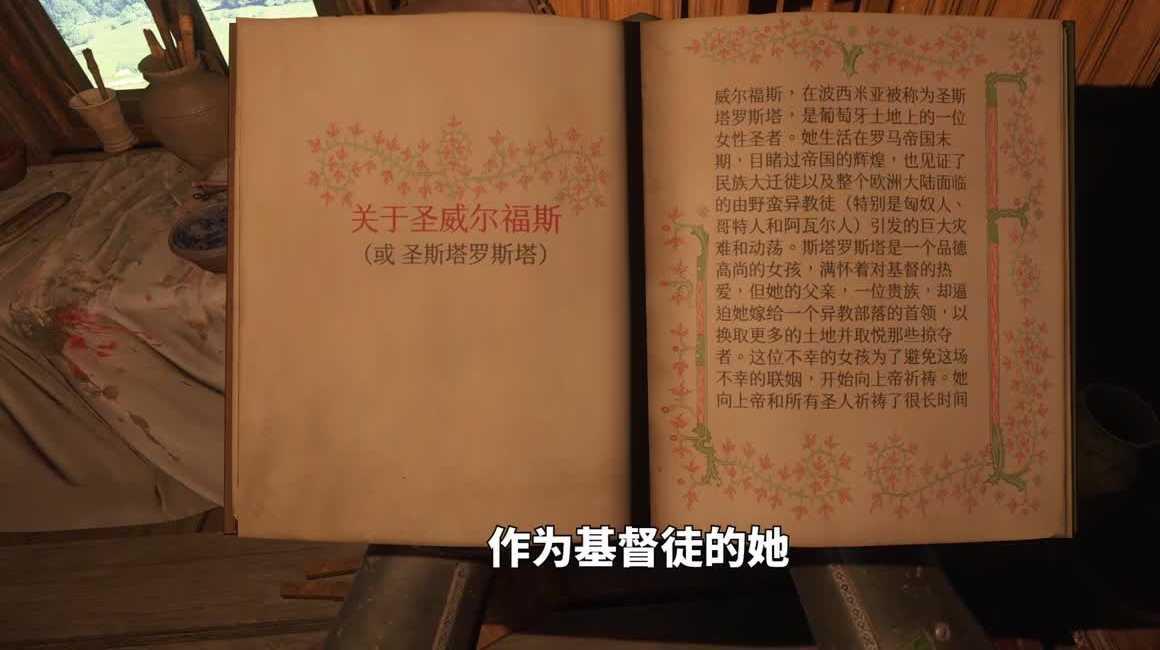 关于圣威尔福斯
（或 圣斯塔罗斯塔）
威尔福斯，在波西米亚被称为圣斯
塔罗斯塔，是葡萄牙土地上的一位
女性圣者。她生活在罗马帝国末
期，目睹过帝国的辉煌，也见证了
民族大迁徙以及整个欧洲大陆面临
的由野蛮异教徒（特别是匈奴人、
哥特人和阿瓦尔人）引发的巨大灾
难和动荡。斯塔罗斯塔是一个品德
高尚的女孩，满怀着对基督的热
爱，但她的父亲，一位贵族，却逼
迫她嫁给一个异教部落的首领，以
换取更多的土地并取悦那些掠夺
者。这位不幸的女孩为了避免这场
不幸的联姻，开始向上帝祈祷。她
向上帝和所有圣人祈祷了很长时间
作为基督徒的她